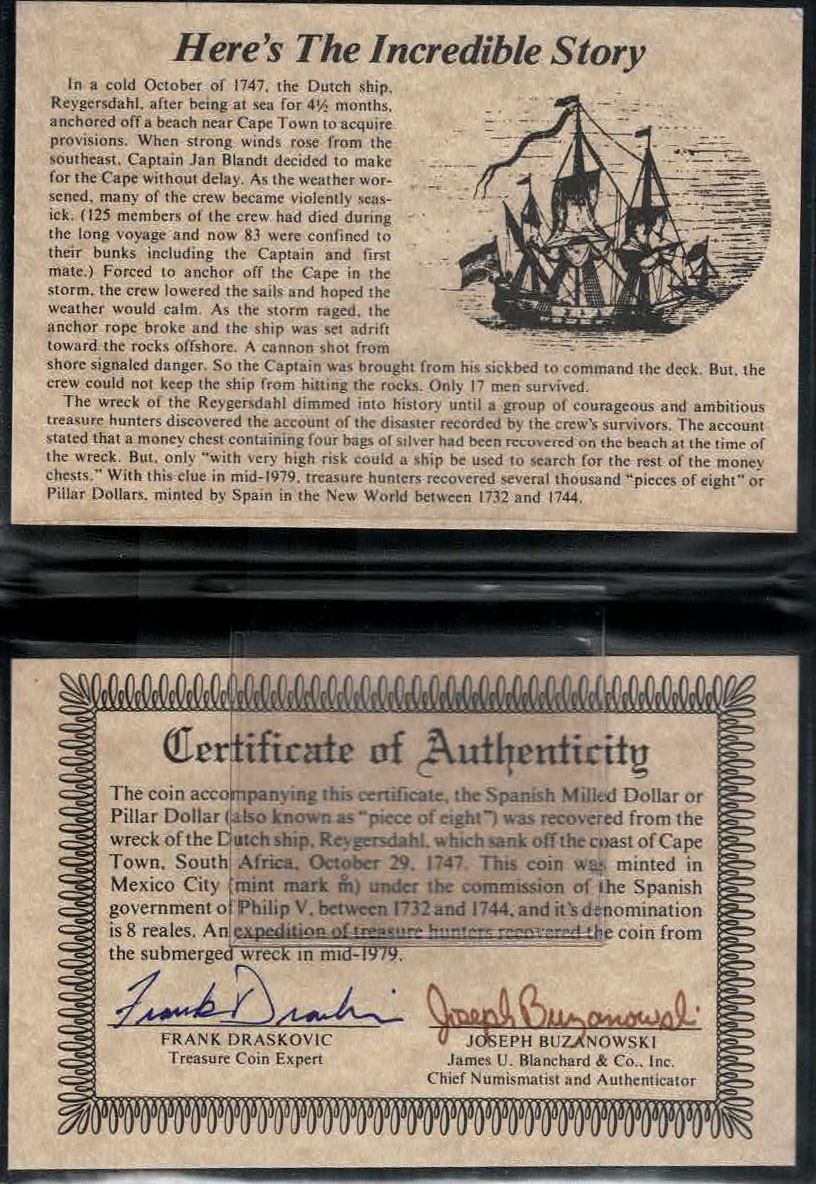 Here's The Incredible Story
In a cold October of 1747, the Dutch ship,
Reygersdahl, after being at sea for 4½ months,
anchored off a beach near Cape Town to acquire
provisions. When strong winds rose from the
southeast, Captain Jan Blandt decided to make
for the Cape without delay. As the weather wor-
sened, many of the crew became violently seas-
ick. (125 members of the crew had died during
the long voyage and now 83 were confined to
their bunks including the Captain and first
mate.) Forced to anchor off the Cape in the
storm, the crew lowered the sails and hoped the
weather would calm. As the storm raged, the
anchor rope broke and the ship was set adrift
toward the rocks offshore. A cannon shot from
shore signaled danger. So the Captain was brought from his sickbed to command the deck. But, the
crew could not keep the ship from hitting the rocks. Only 17 men survived.
The wreck of the Reygersdahl dimmed into history until a group of courageous and ambitious
treasure hunters discovered the account of the disaster recorded by the crew's survivors. The account
stated that a money chest containing four bags of silver had been recovered on the beach at the time of
the wreck. But, only "with very high risk could a ship be used to search for the rest of the money
chests." With this clue in mid-1979, treasure hunters recovered several thousand "pieces of eight" or
Pillar Dollars, minted by Spain in the New World between 1732 and 1744.
Certificate of Authenticity
The coin accompanying this certificate, the Spanish Milled Dollar or
Pillar Dollar (also known as "piece of eight") was recovered from the
wreck of the Dutch ship, Reygersdahl, which sank off the coast of Cape
Town, South Africa, October 29, 1747. This coin was minted in
Mexico City (mint mark m̊) under the commission of the Spanish
government of Philip V, between 1732 and 1744, and it's denomination
is 8 reales. An expedition of treasure hunters recovered the coin from
the submerged wreck in mid-1979.
Frank Draskovic
Joseph Buzanowski
FRANK DRASKOVIC
JOSEPH BUZANOWSKI
Treasure Coin Expert
James U. Blanchard & Co., Inc.
Chief Numismatist and Authenticator